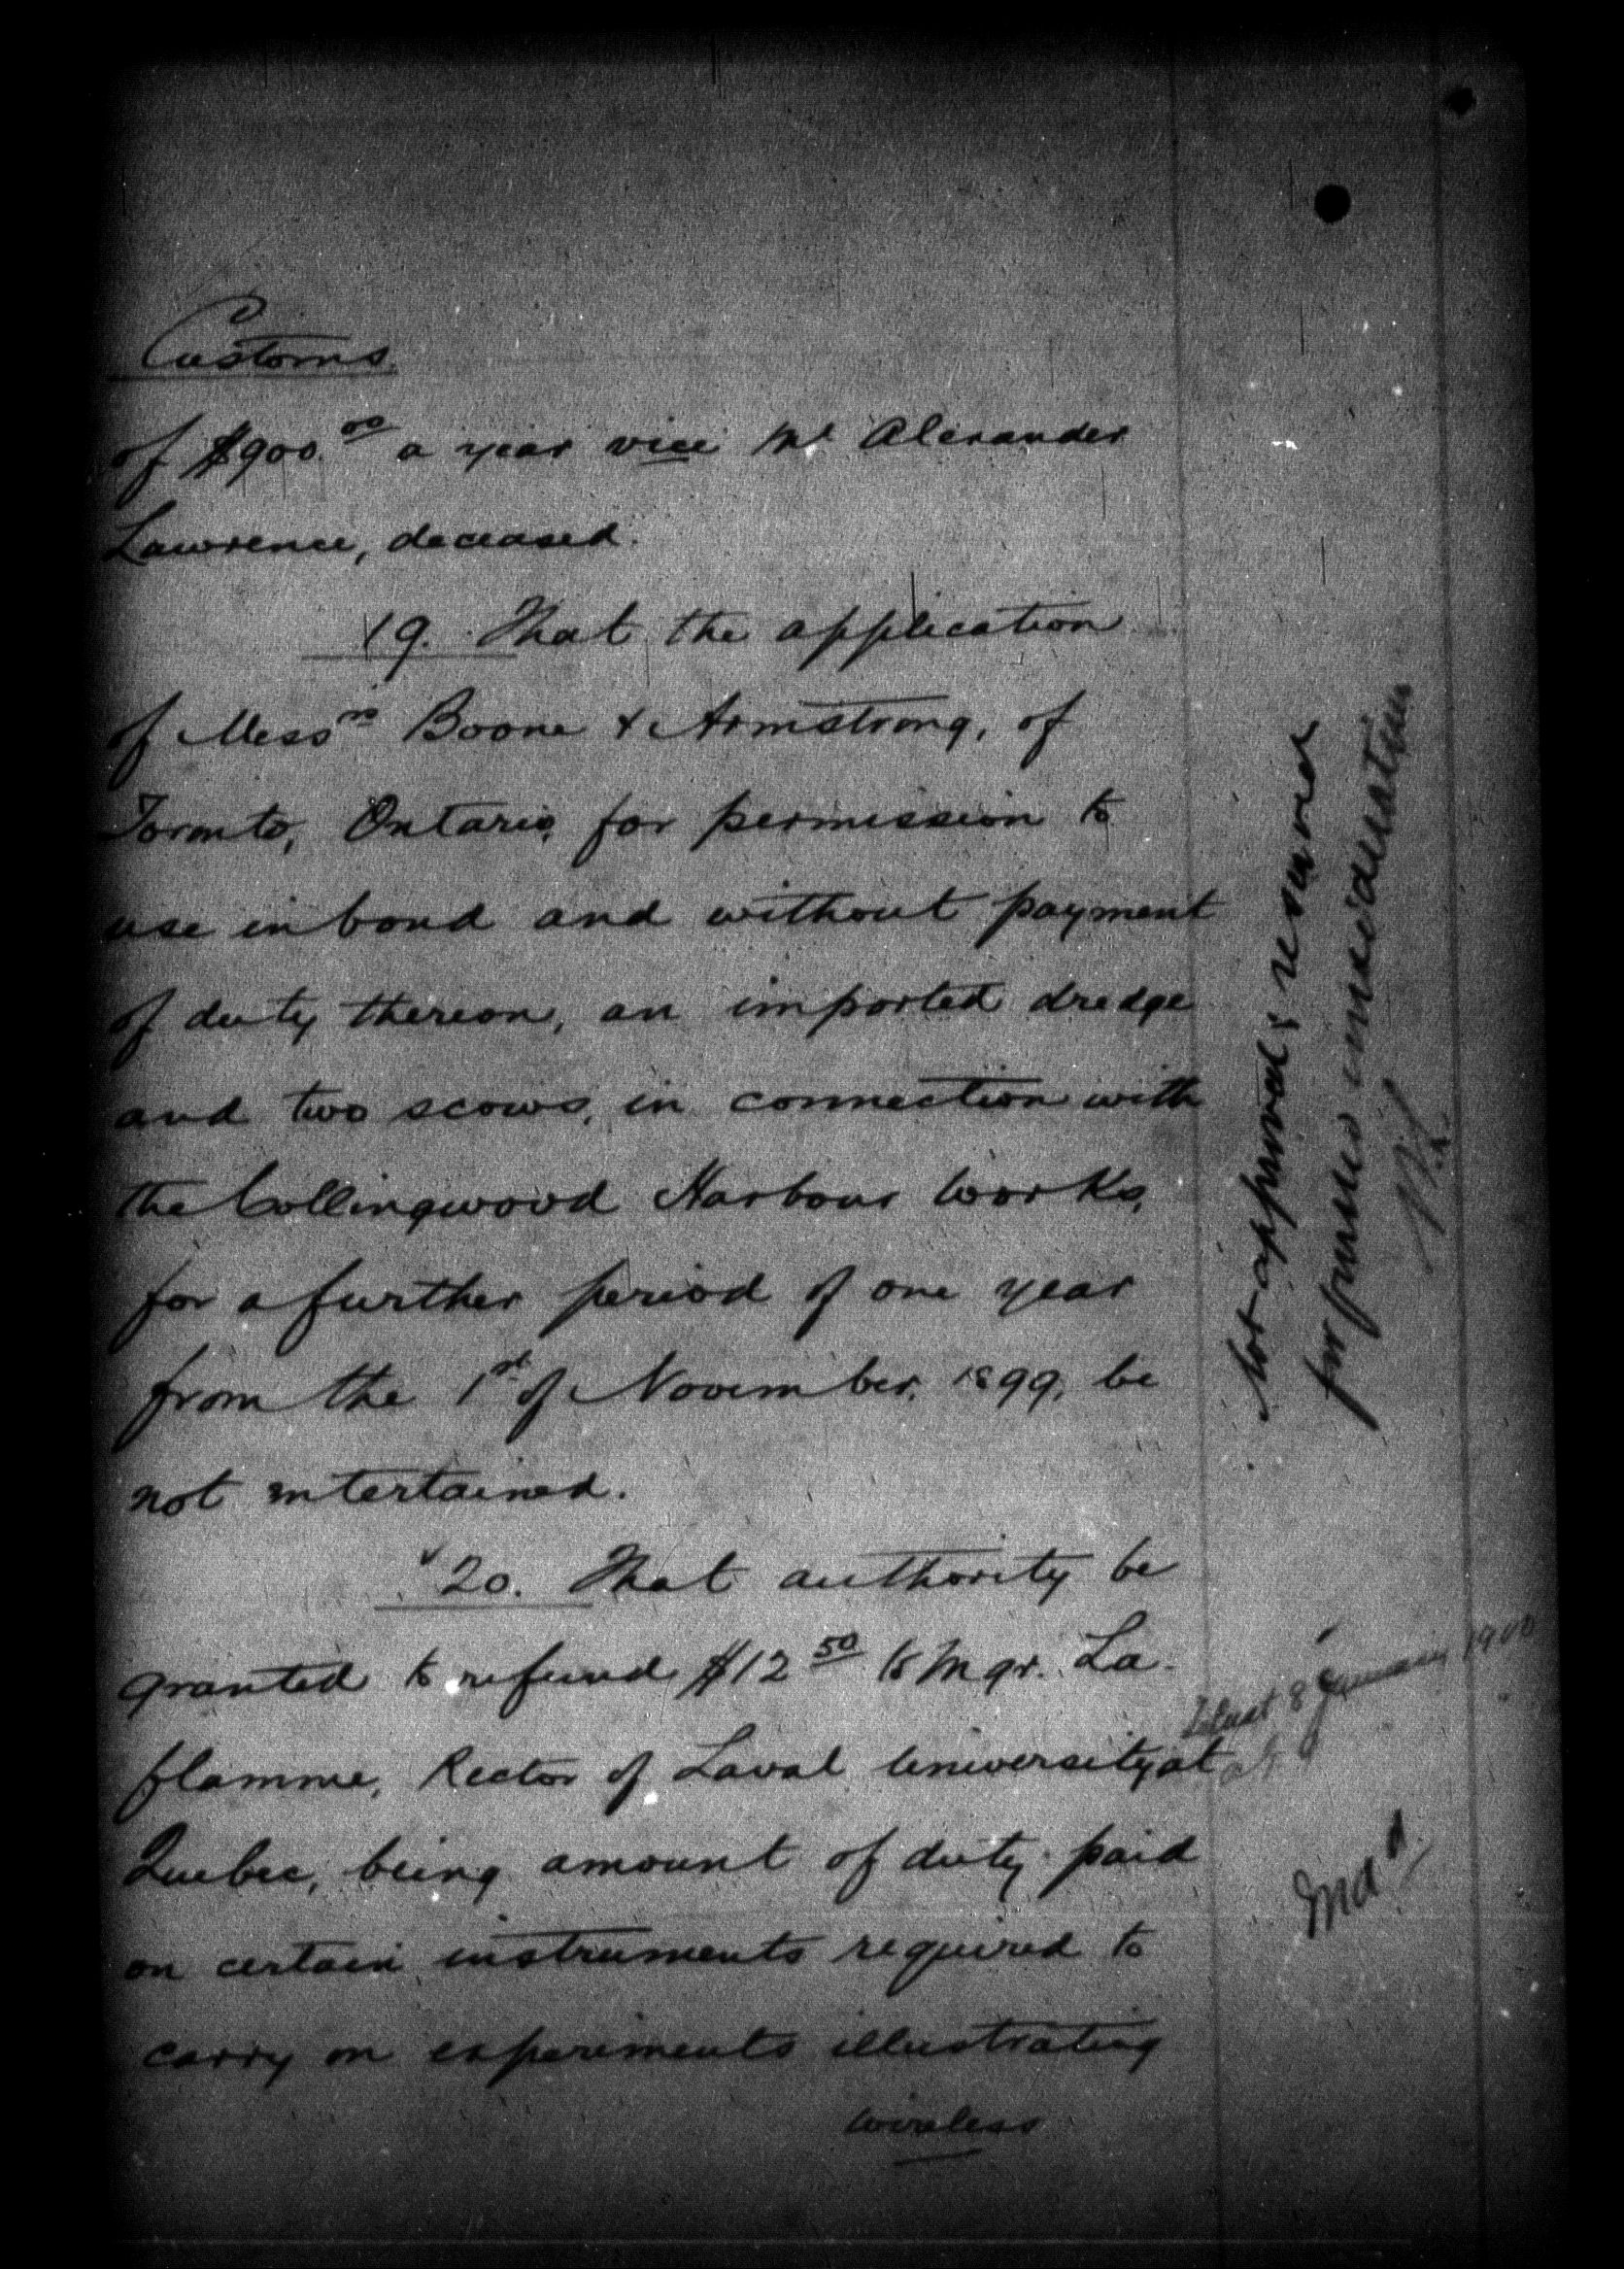 Customs.
of $900.00 a year vice Mr Alexander
Lawrence, deceased.
19. That the application
of Messrs Boone & Armstrong, of
Toronto, Ontario, for permission to
use in bond and without payment
of duty thereon, an imported dredge
and two scows, in connection with
the Collingwood Harbour Works,
for a further period of one year
from the 1st of November, 1899, be
not entertained.
20. That authority be
granted to refund $12 50 to Mgr. La-
flamme, Rector of Laval University at
Quebec, being amount of duty paid
on certain instruments required to
carry on experiments illustrating
wireless
Not approved & reserved
for further consideration
8 January 1900